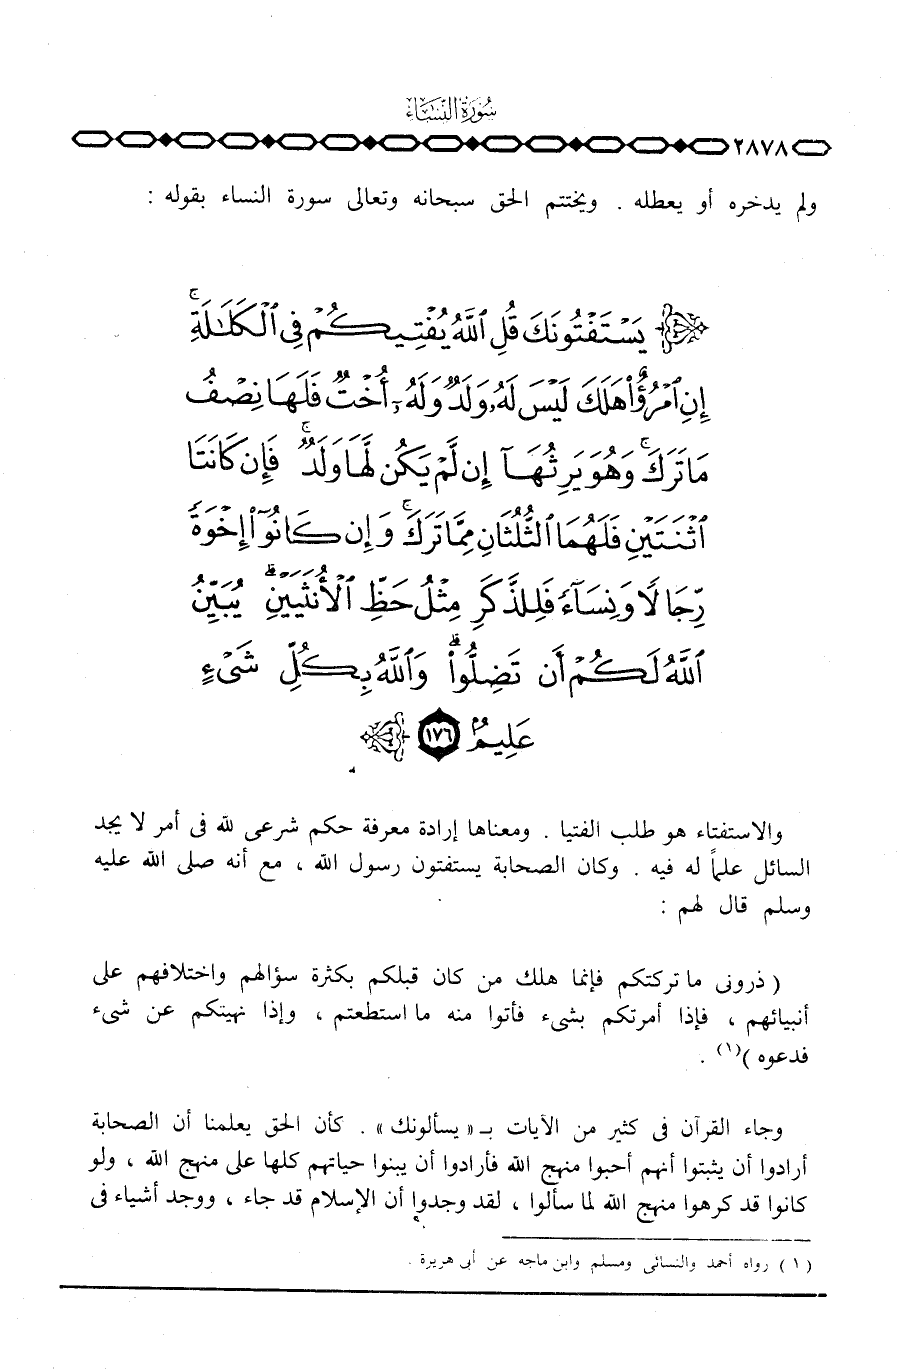 سُورَةُ النِّسَاء
٢٨٧٨
ولم يدخره أو يعطله . ويختتم الحق سبحانه وتعالى سورة النساء بقوله :
يَسْتَفْتُونَكَ قُلِ ٱللَّهُ يُفْتِيكُمْ فِى ٱلْكَلَـٰلَةِ ۚ
إِنِ ٱمْرُؤٌا۟ هَلَكَ لَيْسَ لَهُۥ وَلَدٌ وَلَهُۥٓ أُخْتٌ فَلَهَا نِصْفُ
مَا تَرَكَ ۚ وَهُوَ يَرِثُهَآ إِن لَّمْ يَكُن لَّهَا وَلَدٌ ۚ فَإِن كَانَتَا
ٱثْنَتَيْنِ فَلَهُمَا ٱلثُّلُثَانِ مِمَّا تَرَكَ ۚ وَإِن كَانُوٓا۟ إِخْوَةً
رِّجَالًا وَنِسَآءً فَلِلذَّكَرِ مِثْلُ حَظِّ ٱلْأُنثَيَيْنِ ۗ يُبَيِّنُ
ٱللَّهُ لَكُمْ أَن تَضِلُّوا۟ ۗ وَٱللَّهُ بِكُلِّ شَىْءٍ
عَلِيمٌۢ ١٧٦
والاستفتاء هو طلب الفتيا . ومعناها إرادة معرفة حكم شرعى لله فى أمر لا يجد
السائل علماً له فيه . وكان الصحابة يستفتون رسول الله ، مع أنه صلى الله عليه
وسلم قال لهم :
( ذرونى ما تركتكم فإنما هلك من كان قبلكم بكثرة سؤالهم واختلافهم على
أنبيائهم ، فإذا أمرتكم بشىء فأتوا منه ما استطعتم ، وإذا نهيتكم عن شىء
فدعوه )(١) .
وجاء القرآن فى كثير من الآيات بـ « يسألونك » . كأن الحق يعلمنا أن الصحابة
أرادوا أن يثبتوا أنهم أحبوا منهج الله فأرادوا أن يبنوا حياتهم كلها على منهج الله ، ولو
كانوا قد كرهوا منهج الله لما سألوا ، لقد وجدوا أن الإسلام قد جاء ، ووجد أشياء فى
( ١ ) رواه أحمد والنسائى ومسلم وابن ماجه عن أبى هريرة .